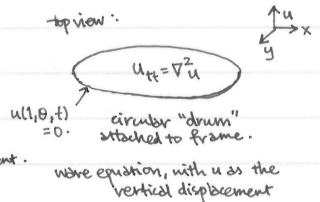 top view:
u
x
y
u_tt = ∇²u
u(1,θ,t)
= 0.
circular "drum"
attached to frame.
wave equation, with u as the
vertical displacement